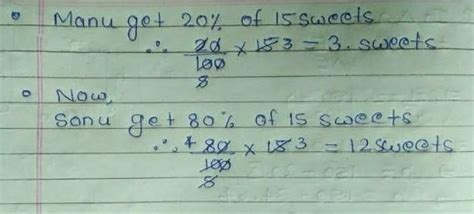 Manu get 20% of 15 sweets
∴ 20/100 × 15 3 = 3. sweets
5
Now,
Sonu get 80% of 15 sweets
∴ 4 80/100 × 15 3 = 12 sweets
5